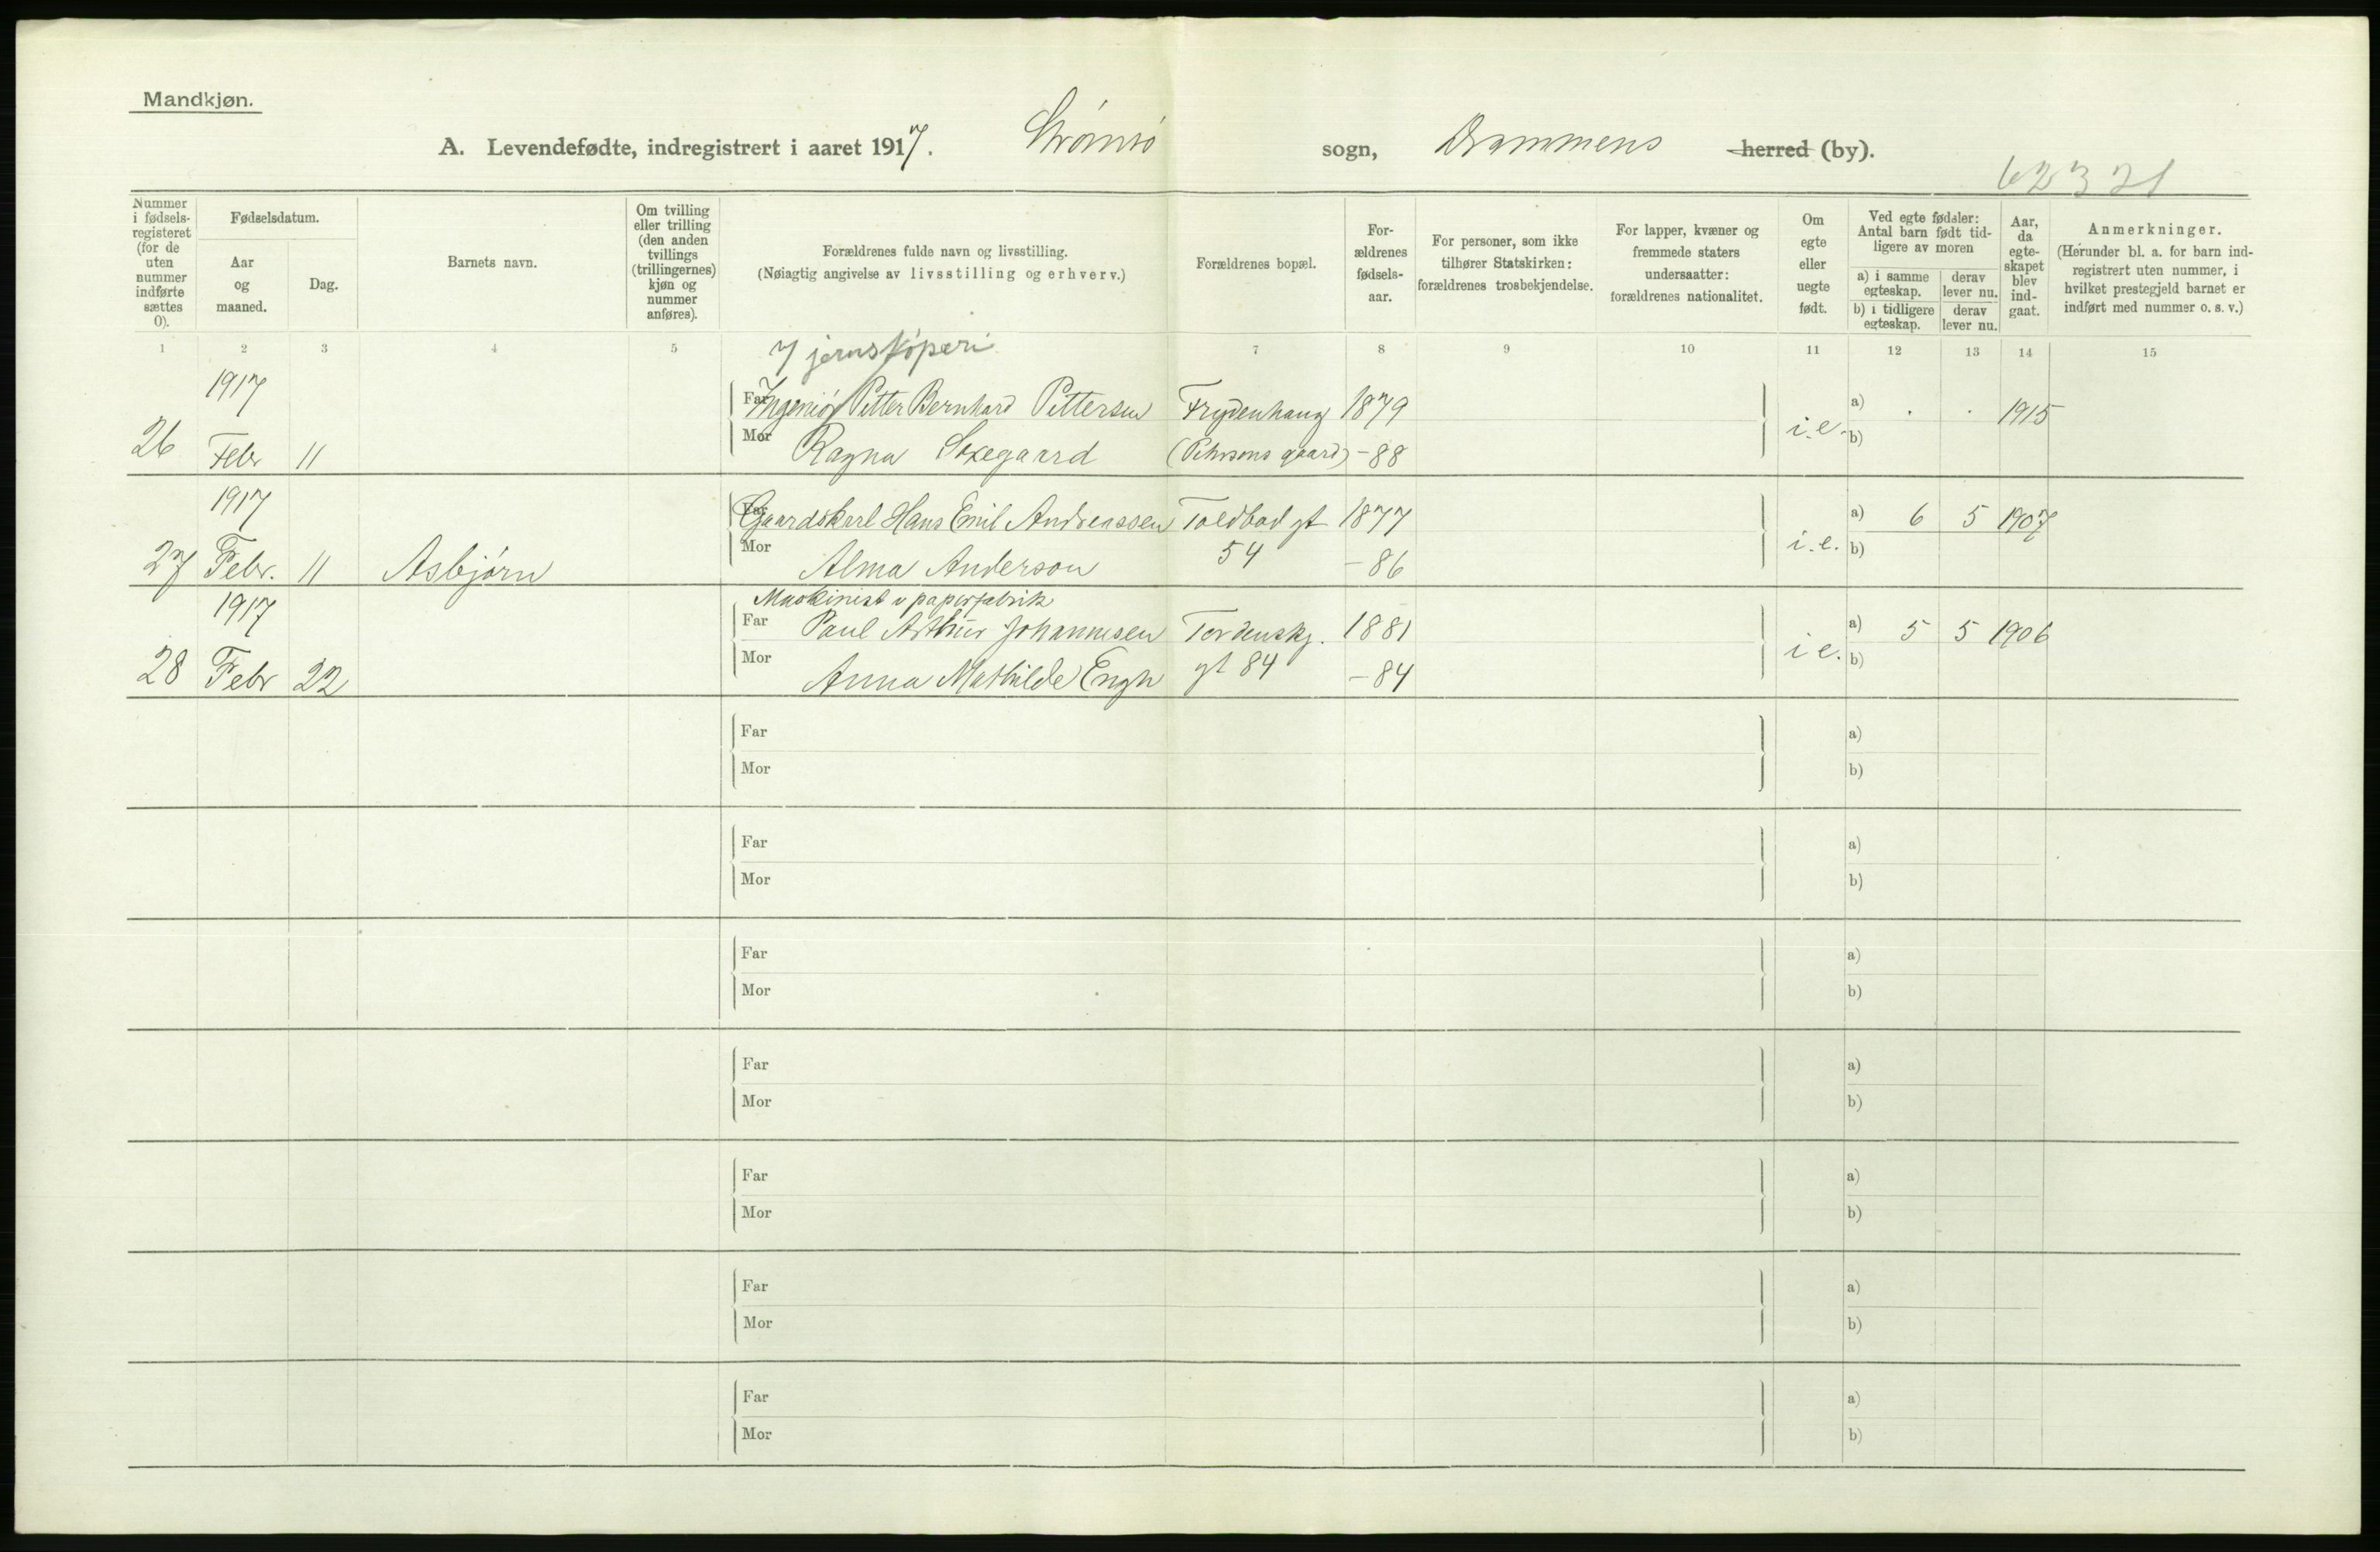 Mandkjøn.
A. Levendefødte, indregistrert i aaret 1917. Strømsø sogn, Drammens herred (by).
62321
Nummer i fødsels-registeret (for de uten nummer indførte sættes 0).
Fødselsdatum.
Aar og maaned.
Dag.
Barnets navn.
Om tvilling eller trilling (den anden tvillings (trillingernes) kjøn og nummer anføres).
Forældrenes fulde navn og livsstilling.
(Nøiagtig angivelse av livsstilling og erhverv.)
Forældrenes bopæl.
For-ældrenes fødsels-aar.
For personer, som ikke tilhører Statskirken: forældrenes trosbekjendelse.
For lapper, kvæner og fremmede staters undersaatter: forældrenes nationalitet.
Om egte eller uegte født.
Ved egte fødsler: Antal barn født tid-ligere av moren
a) i samme egteskap. derav lever nu.
b) i tidligere egteskap. derav lever nu.
Aar, da egte-skapet blev ind-gaat.
Anmerkninger.
(Herunder bl. a. for barn ind-registrert uten nummer, i hvilket prestegjeld barnet er indført med nummer o. s. v.)
1 2 3 4 5 7 8 9 10 11 12 13 14 15
jernstøperi
1917
Far Ingeniør Petter Bernhard Pettersen Frydenhaug 1879 a) . . 1915
26 Febr 11 Mor Ragna Saxegaard (Pehrsons gaard) -88 i.e. b)
1917
Far Gaardskarl Hans Emil Andreassen Toldbod gt 1877 a) 6 5 1907
27 Febr. 11 Asbjørn Mor Alma Anderson 54 -86 i.e. b)
1917 Maskinist v papirfabrik
Far Paul Arthur Johannesen Tordenskj. 1881 a) 5 5 1906
28 Febr 22 Mor Anna Mathilde Engh gt 84 -84 i e. b)
Far a)
Mor b)
Far a)
Mor b)
Far a)
Mor b)
Far a)
Mor b)
Far a)
Mor b)
Far a)
Mor b)
Far a)
Mor b)